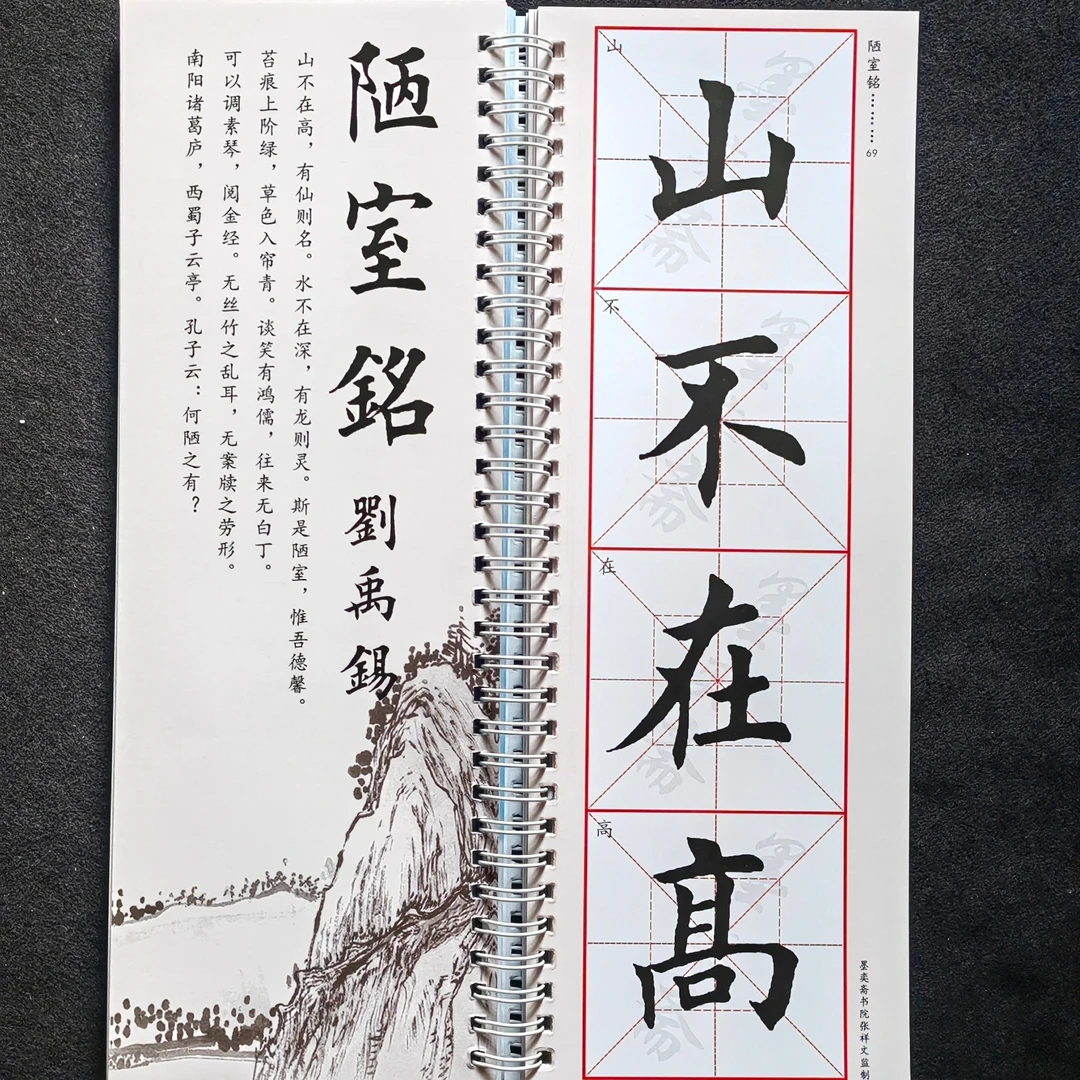 陋室銘
劉禹錫
山不在高，有仙则名。水不在深，有龙则灵。斯是陋室，惟吾德馨。
苔痕上阶绿，草色入帘青。谈笑有鸿儒，往来无白丁。
可以调素琴，阅金经。无丝竹之乱耳，无案牍之劳形。
南阳诸葛庐，西蜀子云亭。孔子云：何陋之有？
陋室铭………69
山
山
不
不
在
在
高
髙
墨奕斋书院张样文监制